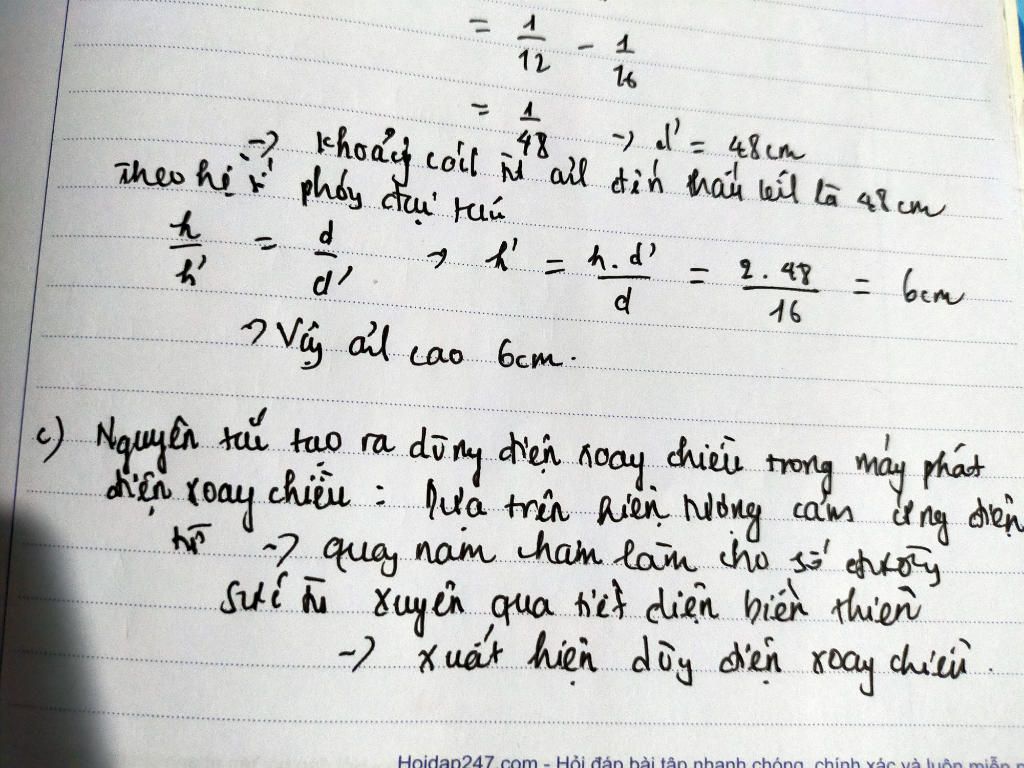 = 1/12 - 1/16
= 1/48 → d' = 48cm
→ khoảng cách từ ảnh đến thấu kính là 48cm
Theo hệ số phóng đại
h/h' = d/d' → h' = h.d'/d = 2.48/16 = 6cm
→ Vậy ảnh cao 6cm.
c) Nguyên tắc tạo ra dòng điện xoay chiều trong máy phát
điện xoay chiều : Dựa trên hiện tượng cảm ứng điện
từ → quay nam châm làm cho số đường
sức từ xuyên qua tiết diện biến thiên
→ xuất hiện dòng điện xoay chiều.
Hoidap247.com - Hỏi đáp bài tập nhanh chóng, chính xác và luôn miễn